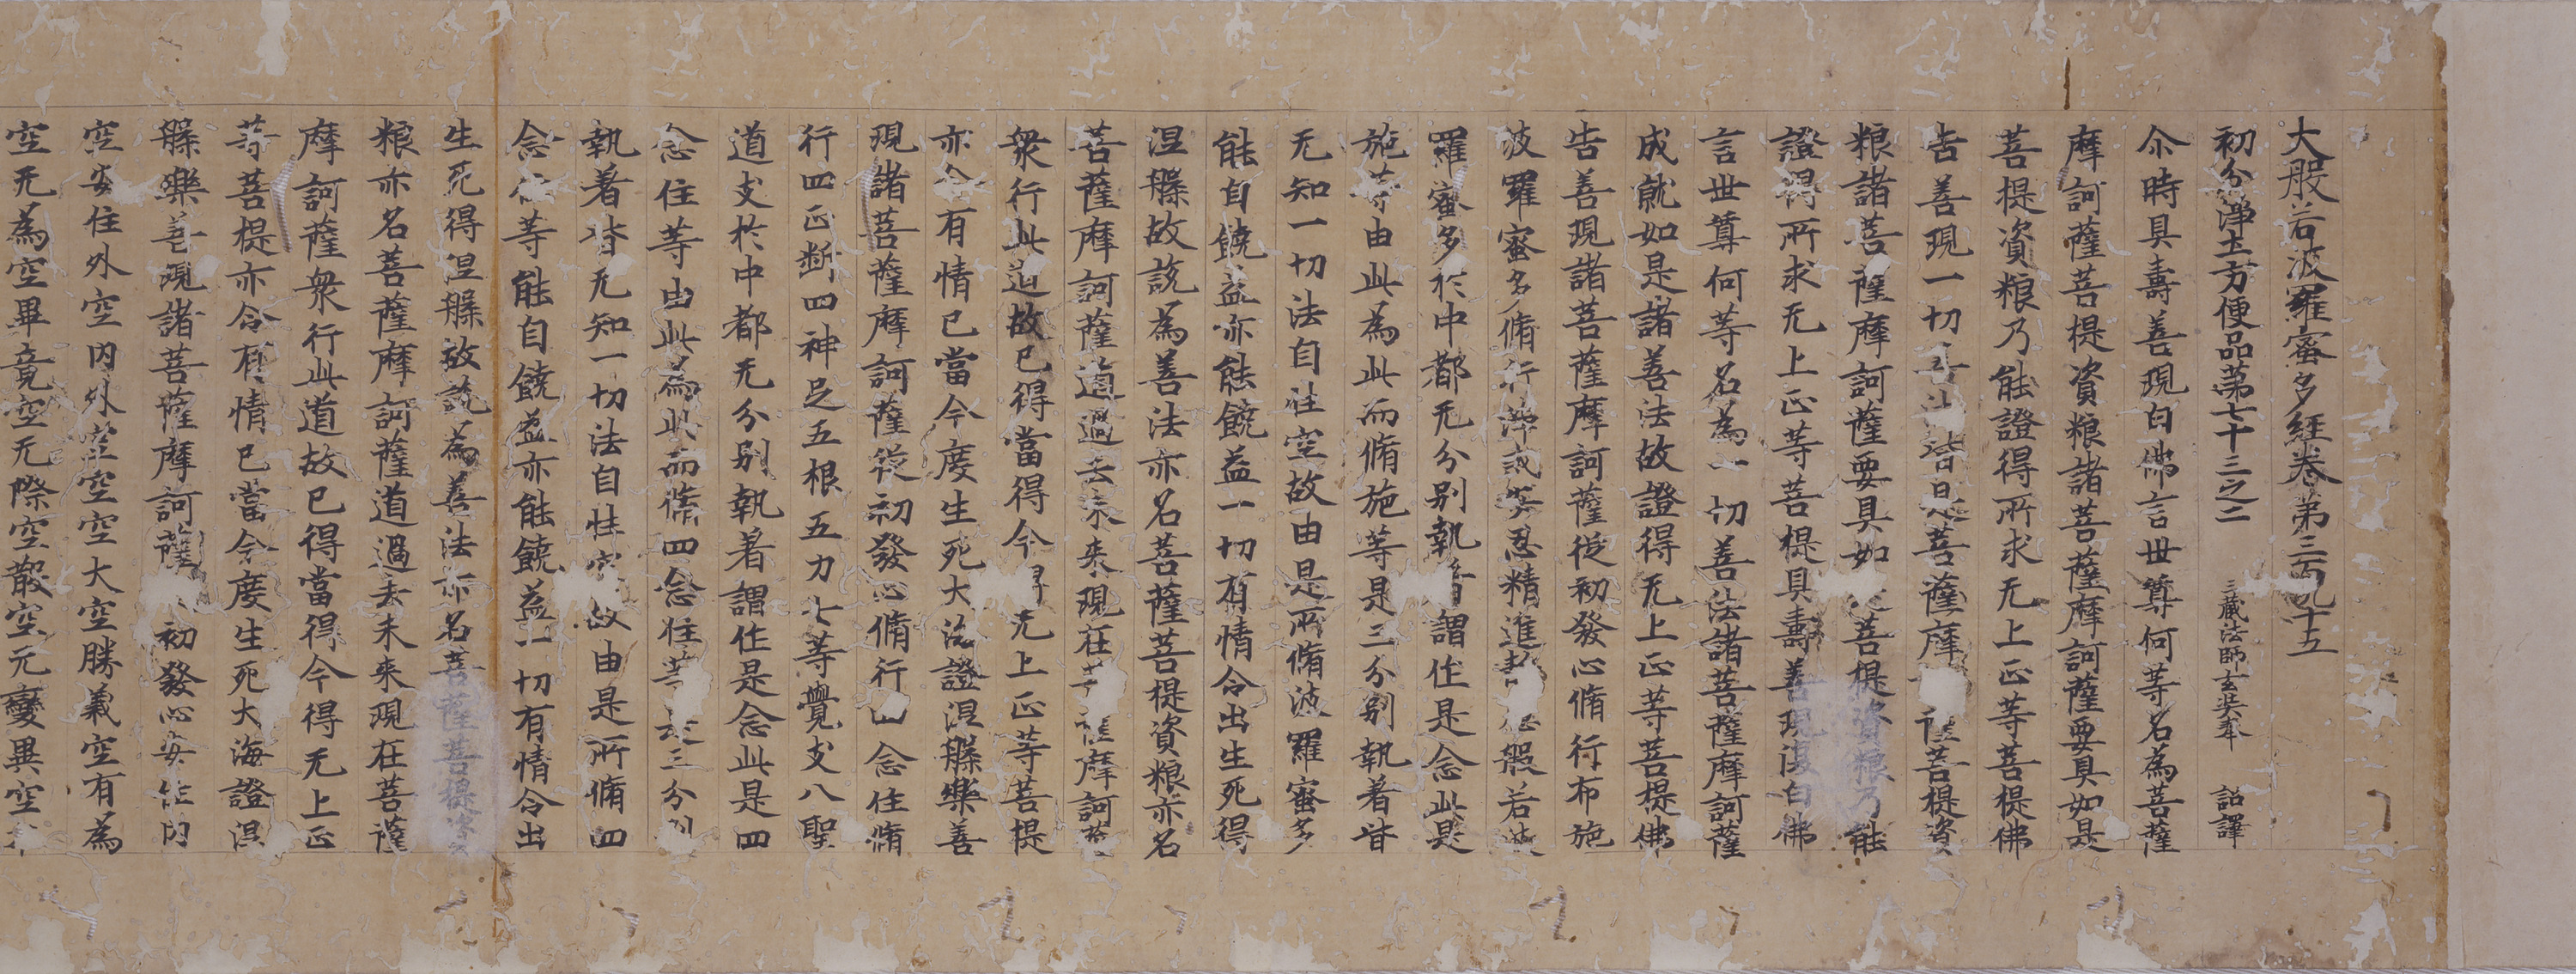 大般若波羅蜜多經卷第三百九十五
初分淨土方便品第七十三之二
三藏法師玄奘奉 詔譯
尒時具壽善現白佛言世尊何等名為菩薩
摩訶薩菩提資粮諸菩薩摩訶薩要具如是
菩提資粮乃能證得所求无上正等菩提佛
告善現一切善法皆是菩薩摩 薩菩提資
粮諸菩薩摩訶薩要具如 菩提資粮乃能
證得所求无上正等菩提具壽善現復白佛
言世尊何等名為一切善法諸菩薩摩訶薩
成就如是諸善法故證得无上正等菩提佛
告善現諸菩薩摩訶薩從初發心脩行布施
波羅蜜多脩行淨戒安忍精進 般若波
羅蜜多於中都无分别執著謂作是念此是
施等由此為此而脩施等是三分别執著皆
无知一切法自性空故由是所脩波羅蜜多
能自饒益亦能饒益一切有情令出生死得
涅槃故説為善法亦名菩薩菩提資粮亦名
菩薩摩訶薩道過去未来現在 薩摩訶薩
衆行此道故已得當得今得无上正等菩提
亦令有情已當今度生死大海證涅槃樂善
現諸菩薩摩訶薩從初發心脩行四念住脩
行四正断四神足五根五力七等覺支八聖
道支於中都无分别執著謂作是念此是四
念住等由此為此而脩四念住等 三分别
執著皆无知一切法自性空故由是所脩四
念住等能自饒益亦能饒益一切有情令出
生死得涅槃故説為善法亦名菩薩菩提資
粮亦名菩薩摩訶薩道過去未来現在菩薩
摩訶薩衆行此道故已得當得今得无上正
等菩提亦令有情已當今度生死大海證涅
槃樂善現諸菩薩摩訶薩 初發心安住内
空安住外空内外空空空大空勝義空有為
空无為空畢竟空无際空散空无變異空本